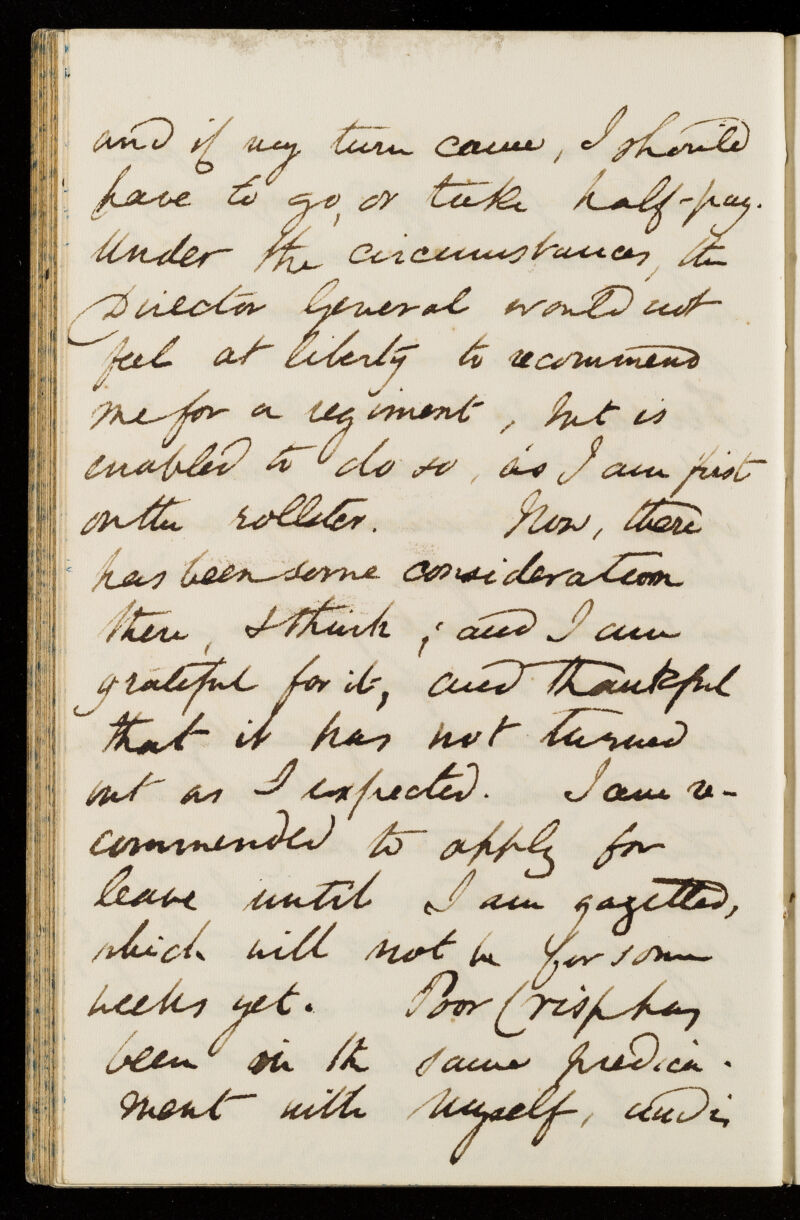 and if my turn came, I should
have to go, or take half-pay.
Under the circumstances, the
Director General would not
feel at liberty to recommend
me for a regiment, but is
enabled to do so, as I am first
on the rollster. Now, there
has been some consideration
there, I think; and I am
grateful for it, and thankful
that it has not turned
out as I expected. I am re-
commended to apply for
leave until I am gazetted,
which will not be for some
weeks yet. Poor Crisp has
been in the same predica-
ment with myself, and is